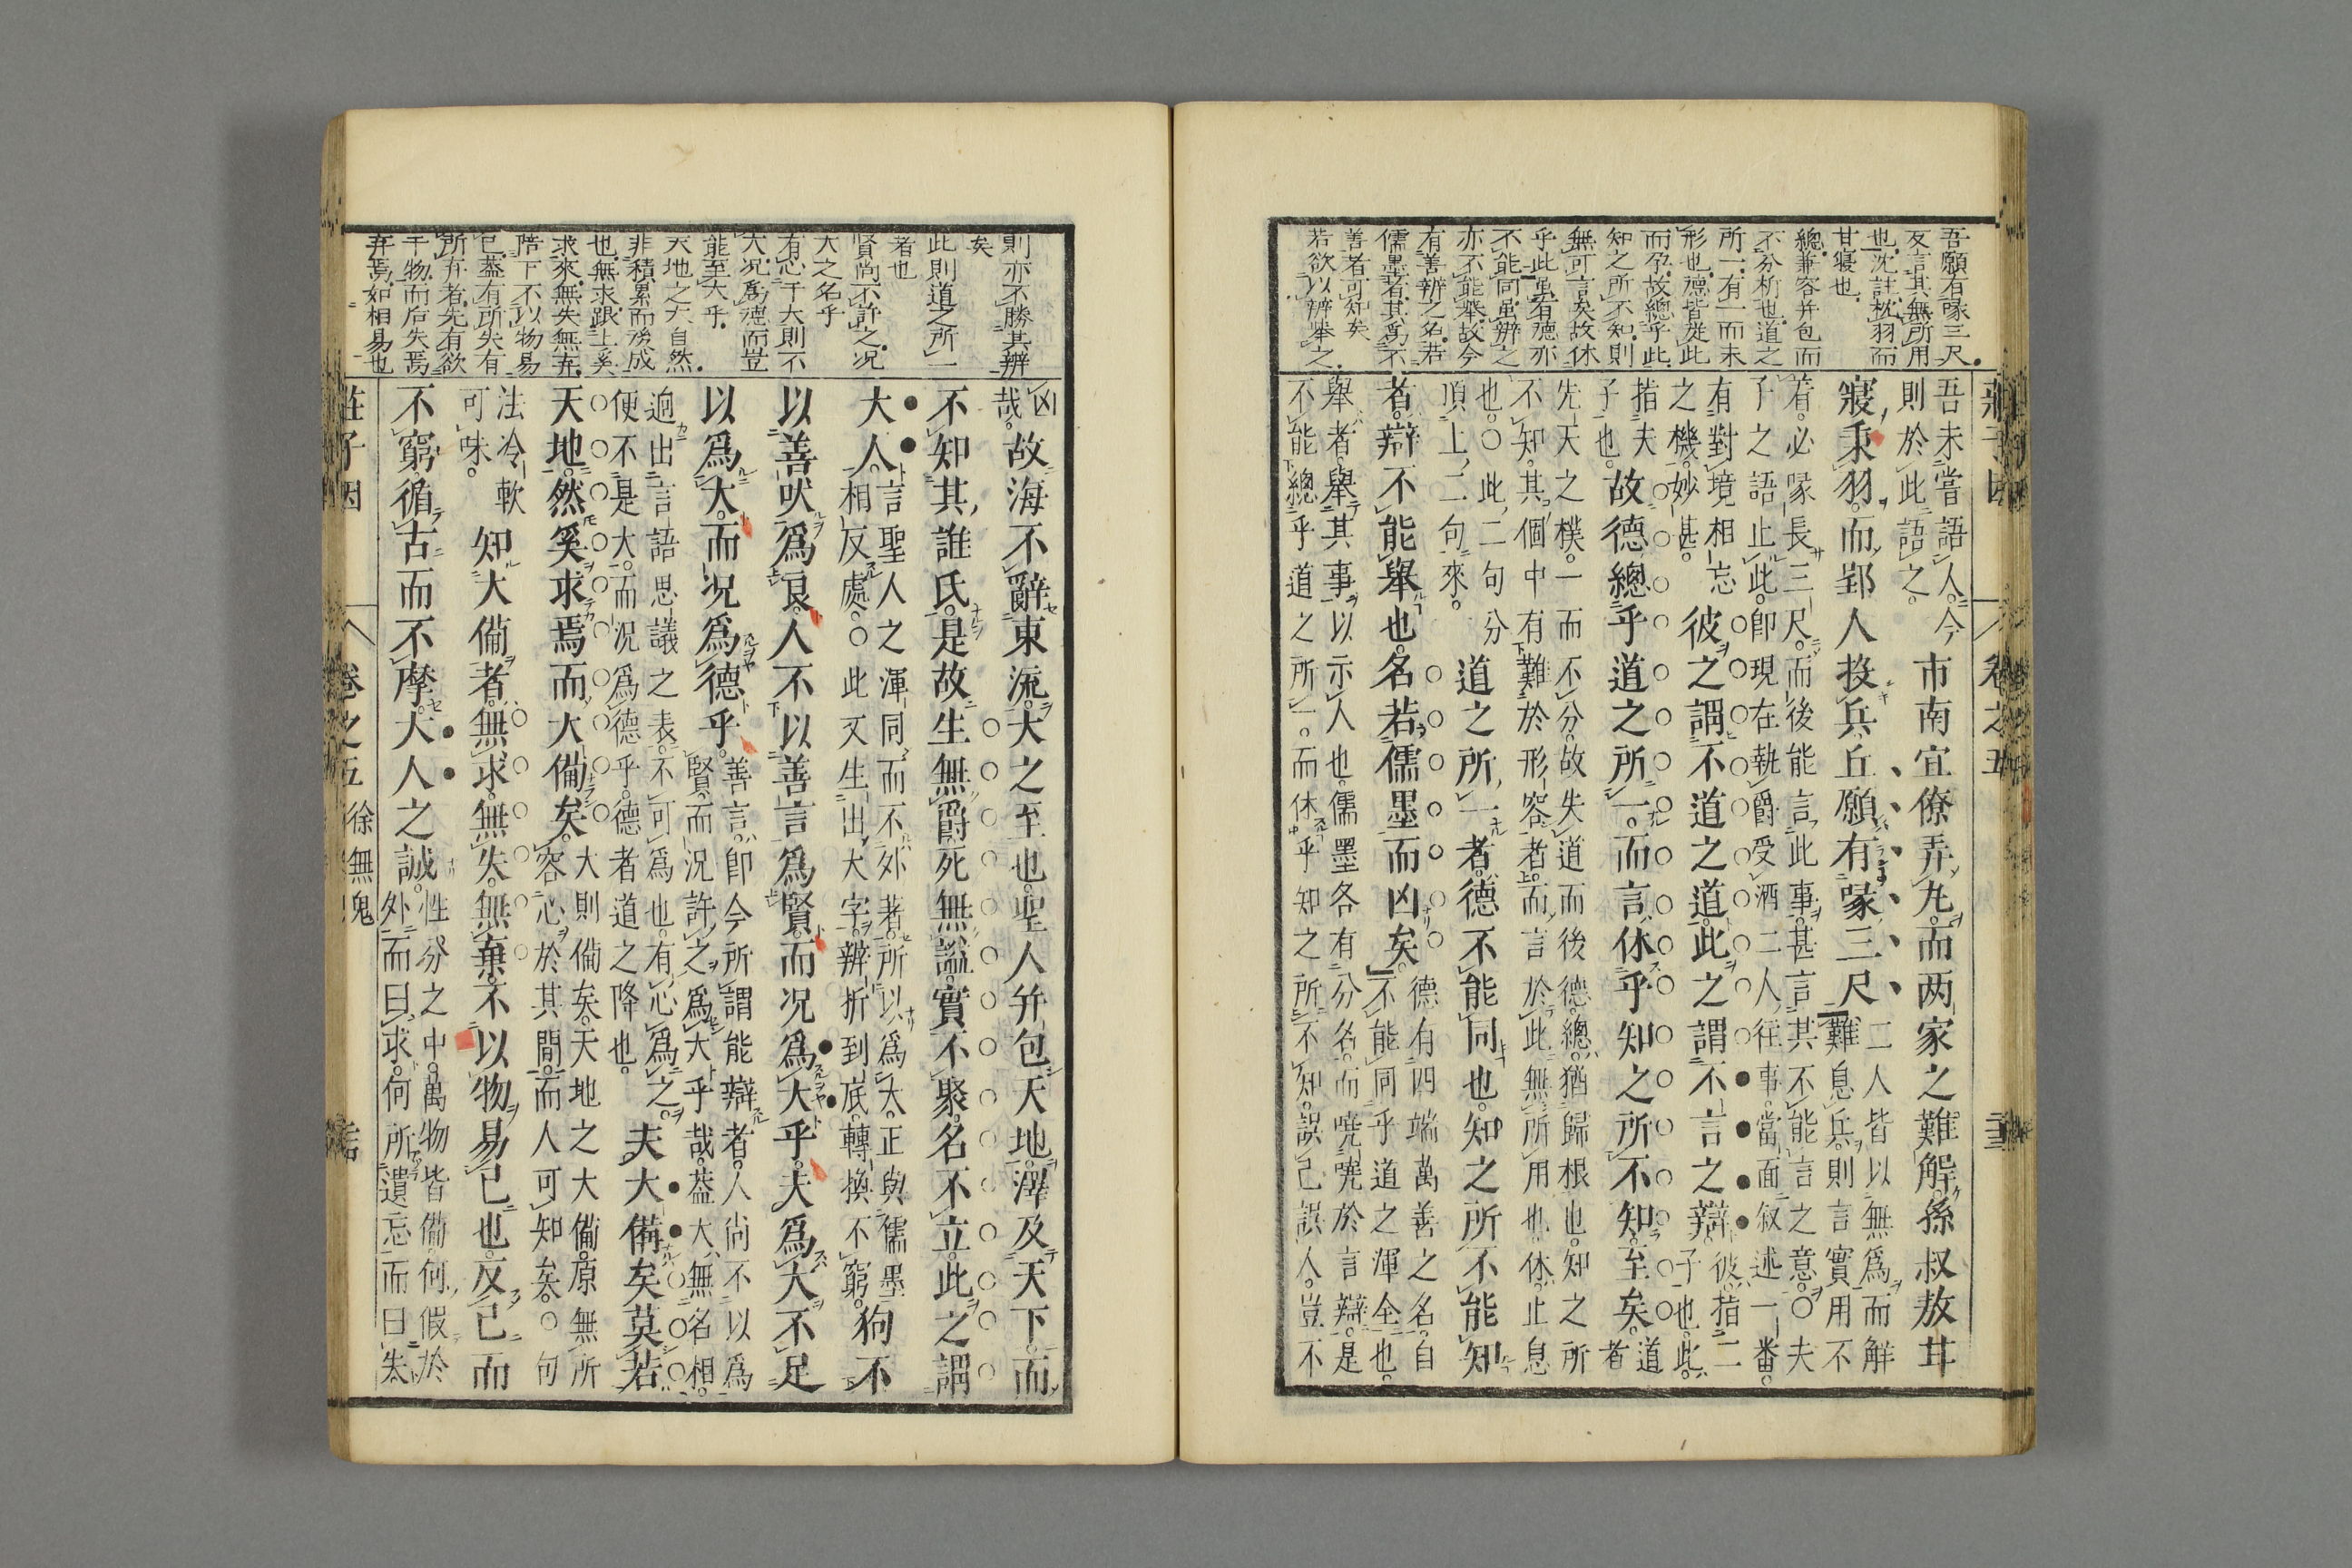 吾願有喙三尺
反言其無所用
也沈註枕羽而
甘寢也
總兼容并包而
不分析也道之
所一有一而未
形也德皆從此
而孕故總乎此
知之所不知則
無可言矣故休
乎此雖有德亦
不能同雖辨之
亦不能舉故今
有善辨之名若
儒墨者其爲不
善者可知矣
若欲以辨舉之
卷之五
吾未嘗語人今
則於此語之。
市南宜僚弄丸。而两家之難解。孫叔敖甘
寢秉羽。而郢人投兵丘願有喙三尺
二人皆以無爲而解
難息兵則言實用不
着必喙長三尺。而後能言此事甚言其不能言之意○夫
子之語止此即現在執爵受酒二人往事當面叙述一番。
有對境相忘
之機妙甚。
彼之謂不道之道此之謂不言之辯
彼指二
子也此
指夫
子也。
故德總乎道之所一。而言休乎知之所不知至矣。
道
者
先天之樸。一而不分故失道而後德總猶歸根也知之所
不知其個中有難於形容者而言於此無所用也休止息
也。○此二句分
頂上二句來。
道之所一者德不能同也知之所不能知
者。辯不能舉也。名若儒墨而凶矣。
德有四端萬善之名自
不能同乎道之渾全也。
舉者舉其事以示人也儒墨各有分名而嘵嘵於言辯是
不能總乎道之所一。而休乎知之所不知。誤己誤人。豈不
則亦不勝其辨
矣
此則道之所一
者也
賢尚不許之况
大之名乎
有心于大則不
大况爲德而豈
能至大乎
天地之大自然
非積累而後成
也無求跟上奚
求來無失無弃
陪下不以物易
已蓋有所失有
所弃者先有欲
于物而后失焉
弃焉如相易也
凶
哉。
故海不辭東流。大之至也聖人并包天地。澤及天下。而
不知其誰氏。是故生無爵死無謚。實不聚名不立此之謂
大人。
言聖人之渾同而不外著所以爲大。正與儒墨
相反處○此又生出大字辨折到底轉換不窮。
狗不
以善吠爲良。人不以善言爲賢。而况爲大乎。夫爲大不足
以爲大。而况爲德乎。
善言即今所謂能辯者。人尚不以爲
賢而况許之爲大乎哉。蓋大無名相。
逈出言語思議之表不可爲也有心爲之
便不是大。而况爲德乎。德者道之降也。
夫大備矣莫若
天地。然奚求焉而大備矣。
大則備矣。天地之大備原無所
容心於其間。而人可知矣○句
法冷軟
可味。
知大備者。無求無失。無棄。不以物易己也。反己而
不窮循古而不摩。大人之誠。
性分之中萬物皆備。何假於
外而曰求何所遺忘而曰失
莊子因
卷之五
徐無鬼